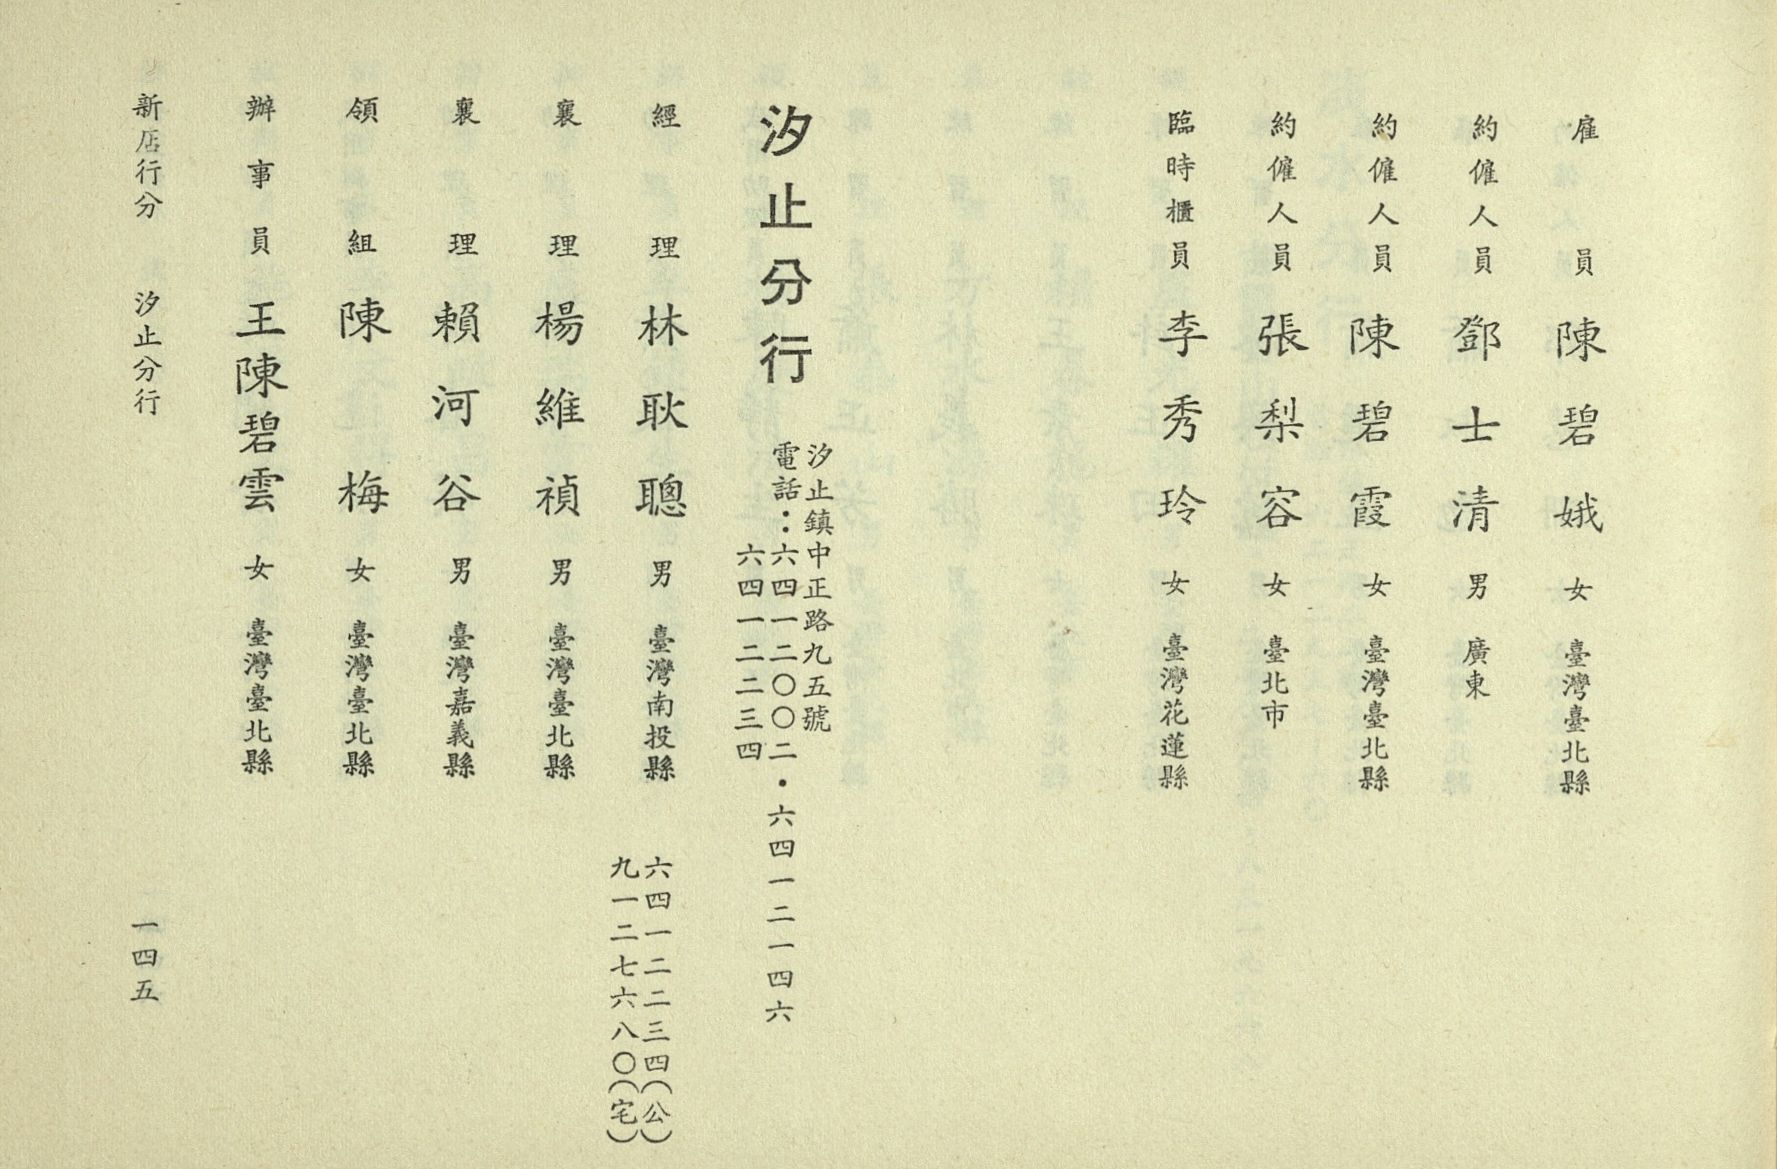 雇員 陳碧娥 女 臺灣臺北縣
約僱人員 鄧士清 男 廣東
約僱人員 陳碧霞 女 臺灣臺北縣
約僱人員 張梨容 女 臺北市
臨時櫃員 李秀玲 女 臺灣花蓮縣
汐止分行
汐止鎮中正路九五號
電話：六四一二〇〇二・六四一二一四六
六四一二二三四
經理 林耿聰 男 臺灣南投縣
六四一二二三四(公)
九一二七六八〇(宅)
襄理 楊維禎 男 臺灣臺北縣
襄理 賴河谷 男 臺灣嘉義縣
領組 陳梅 女 臺灣臺北縣
辦事員 王陳碧雲 女 臺灣臺北縣
新店行分 汐止分行 一四五